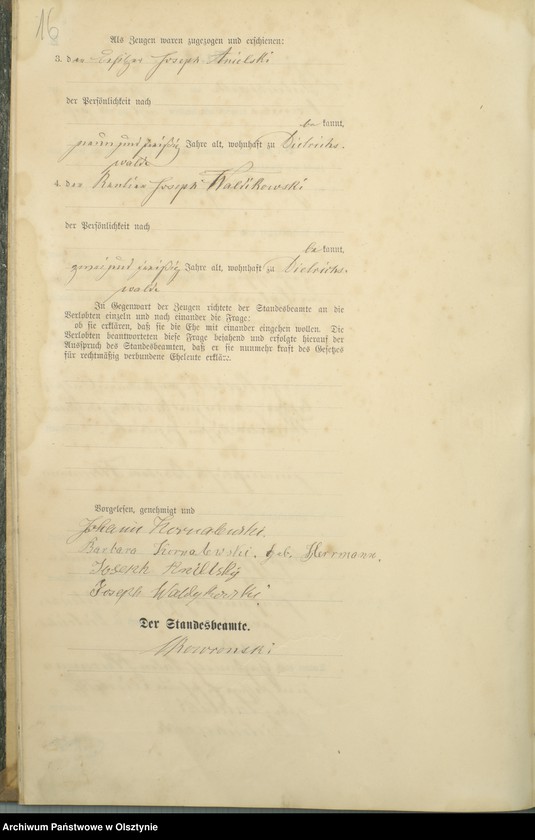 16
Als Zeugen waren zugezogen und erschienen:
3. der Besitzer Joseph Anielski
der Persönlichkeit nach
be kannt,
neun und dreißig Jahre alt, wohnhaft zu Dietrichs-
walde
4. der Rentier Joseph
der Persönlichkeit nach
be kannt,
zwei und dreißig Jahre alt, wohnhaft zu Dietrichs-
walde
In Gegenwart der Zeugen richtete der Standesbeamte an die
Verlobten einzeln und nach einander die Frage:
ob sie erklären, daß sie die Ehe mit einander eingehen wollen. Die
Verlobten beantworteten diese Frage bejahend und erfolgte hierauf der
Ausspruch des Standesbeamten, daß er sie nunmehr kraft des Gesetzes
für rechtmäßig verbundene Eheleute erkläre.
Vorgelesen, genehmigt und
Johann Kornalewski
Barbara Kornalewski. geb. Herrmann.
Joseph
Joseph
Der Standesbeamte.